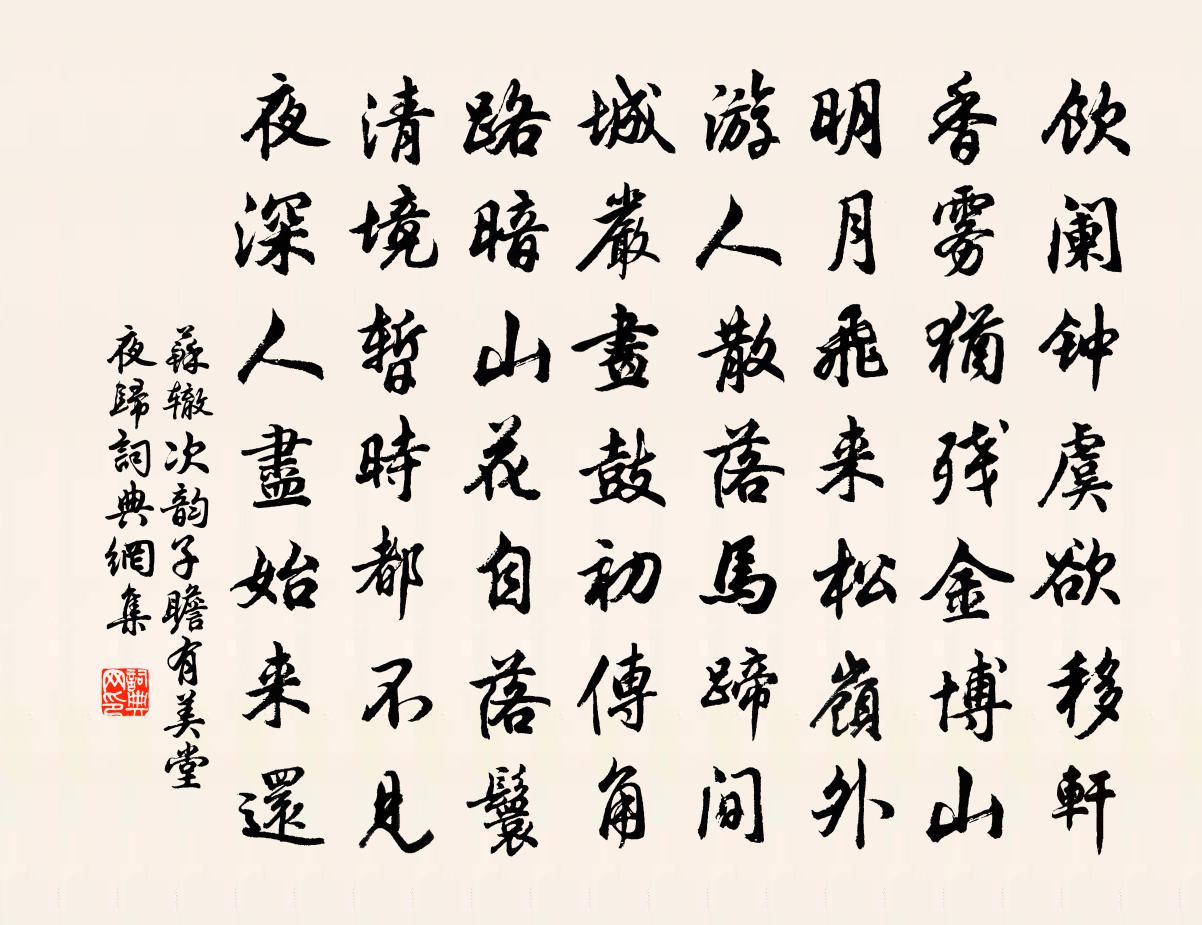 饮阑钟虡欲移軒
香雾犹残金博山
明月飛来松嶺外
游人散落馬蹄间
城嚴畫鼓初傳角
路暗山花自落鬟
清境暫時都不見
夜深人盡始来還
蘇辙次韵子瞻有美堂
夜歸詞典網集
詞典网印